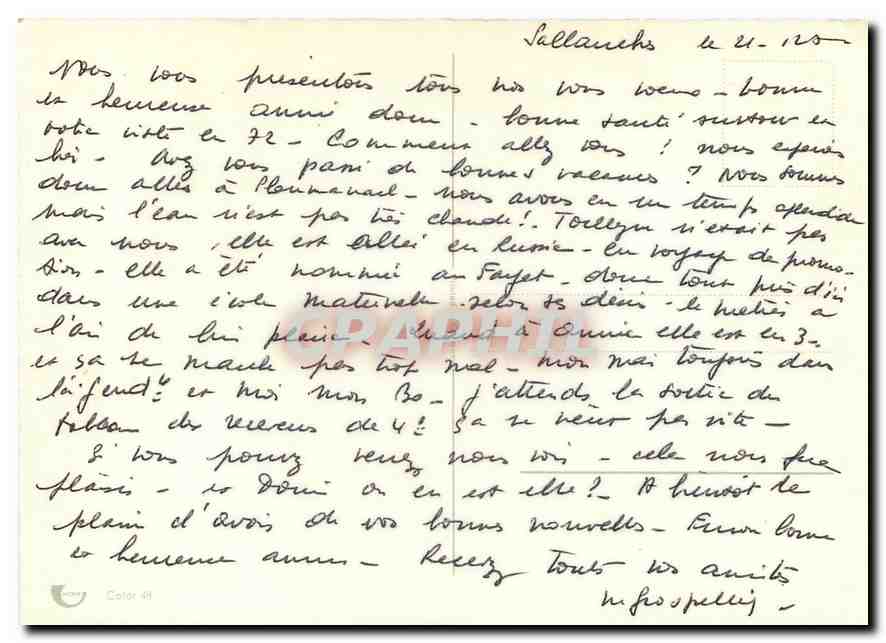 Sallanches le 21-12
Nous vous présentons tous nos voeux - bonne
et heureuse année donc - bonne santé surtout et
votre visite en 72 - Comment allez vous ? nous espérons
bien - Avez vous passé de bonnes vacances ? Nous sommes
donc allés à Ploumanach - nous avons eu un temps splendide
mais l'eau n'est pas très chaude ! - n'était pas
avec nous, elle est allée en Russie - en voyage de promo-
tion - elle a été nommée au Fayet - donc tout près d'ici
dans une école maternelle selon ses désirs - le métier a
l'air de lui plaire - Quand à Annie elle est en 3
et ça ne marche pas trop mal - mon mari toujours dans
la gend et moi mon Bo - j'attends la sortie du
tableau des receveurs de 4e ça ne vient pas vite -
Si vous pouvez venez nous voir - cela nous fera
plaisir - et Domi où en est elle ? - A bientôt le
plaisir d'avoir de vos bonnes nouvelles - Encore bonne
et heureuse année - Recevez toutes nos amitiés
CPAPHIL
Color 48